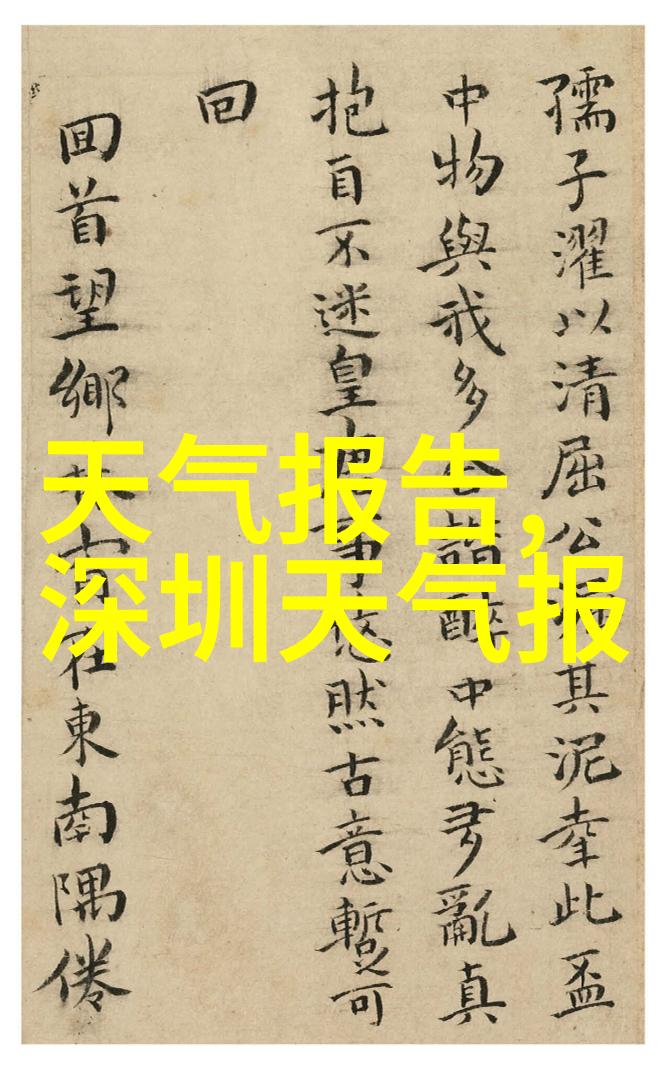 孺子濯以清屈公其泥幸此盃
中物與我多諧醉中態多亂真
抱自不迷皇事悠然古意暫可
回
囬首望鄉在東南隅倦
天气报告,
深圳天气报